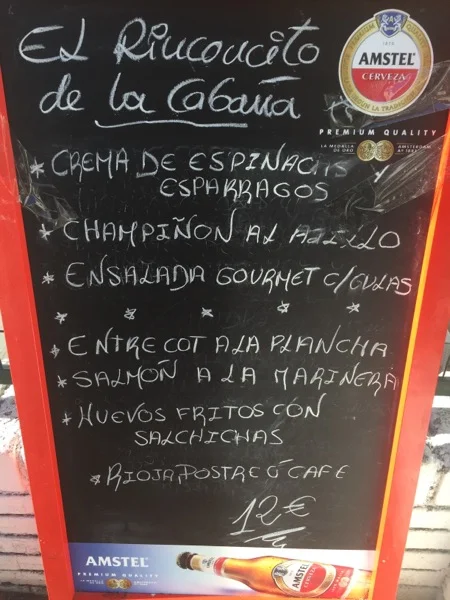 El Rinconcito
de La Cabaña
AMSTEL
CERVEZA
PREMIUM QUALITY
LA MEDALLA DE ORO AMSTERDAM
* CREMA DE ESPINACAS Y
ESPARRAGOS
* CHAMPIÑON AL AJILLO
* ENSALADA GOURMET C/GULAS
* ENTRECOT A LA PLANCHA
* SALMÓN A LA MARINERA
* HUEVOS FRITOS CON
SALCHICHAS
* RIOJA, POSTRE Ó CAFE
12€
AMSTEL
PREMIUM QUALITY
AMSTEL